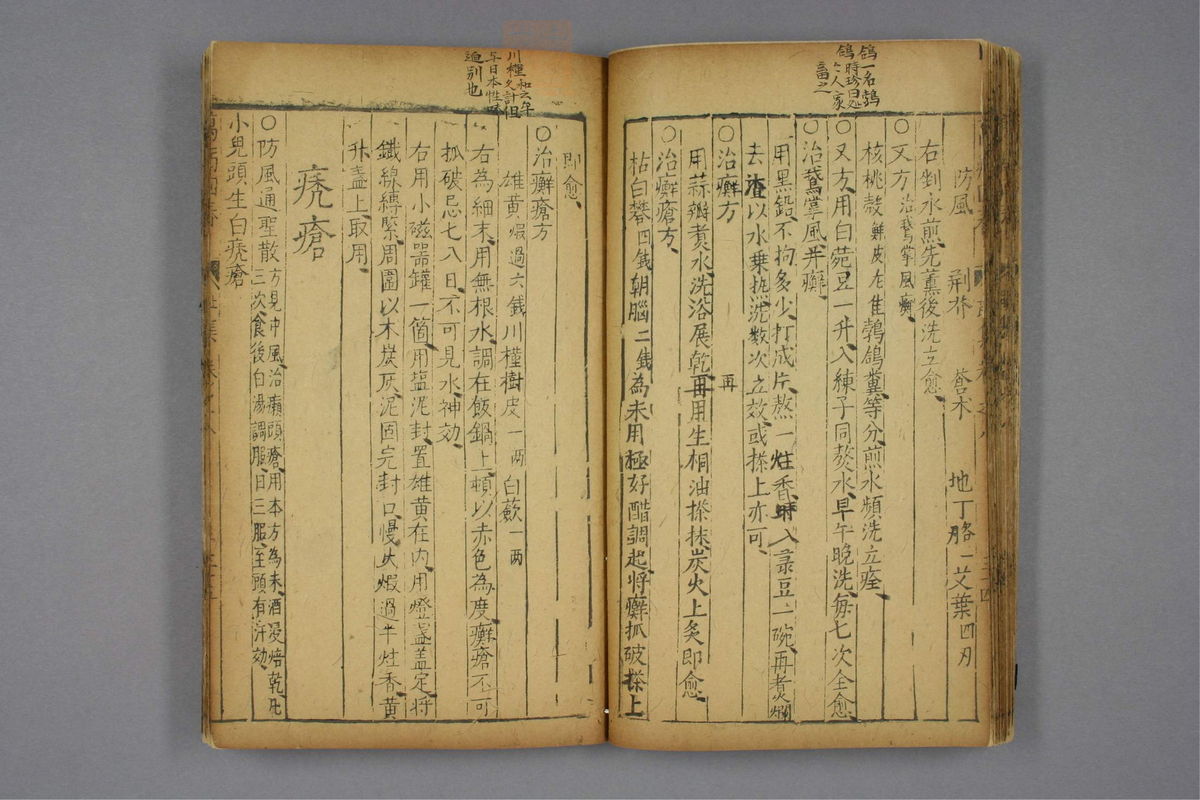 鴿一名鵓
鴿時珍曰処
人家
畜之
防風　荊芥　蒼朮　地丁　胳一　艾葉四刃
右剉水煎先薰後洗立愈
○又方治鵞掌風癬
核桃殼鮮皮鵓鴿糞等分煎水頻洗立痊
○又方用白菀豆一升入練子同熬水早午晚洗每七次全愈
○治鵞掌風并癬
用黑鉛不拘多少打成片熬一炷香時入菉豆一碗再煮爛
去渣以水乗洗数次立效或搽上亦可
○治癬方
用蒜瓣煮水洗浴展乾再用生桐油搽抹炭火上灸即愈
再
○治癬瘡方
枯白礬四銭朝腦二銭為末用極好醋調起將癬抓破搽上
川槿
与日本性
逈别也
即愈
○治癬瘡方
雄黄煆過六銭川槿樹皮一両白蘞一両
右為細末用無根水調在飯鍋上頓以赤色為度癬瘡不可
抓破忌七八日不可見水神効
右用小磁器罐一箇用塩泥封置雄黄在内用燈盞蓋定將
鐵線縛緊周圍以木炭灰泥固完封口慢火煆過半炷香黄
升盞上取用
禿瘡
○防風通聖散方見中風治癩頭瘡用本方為末酒浸焙乾凡
三次食後白湯調服日三服至頭有汗効
小兒頭生白禿瘡